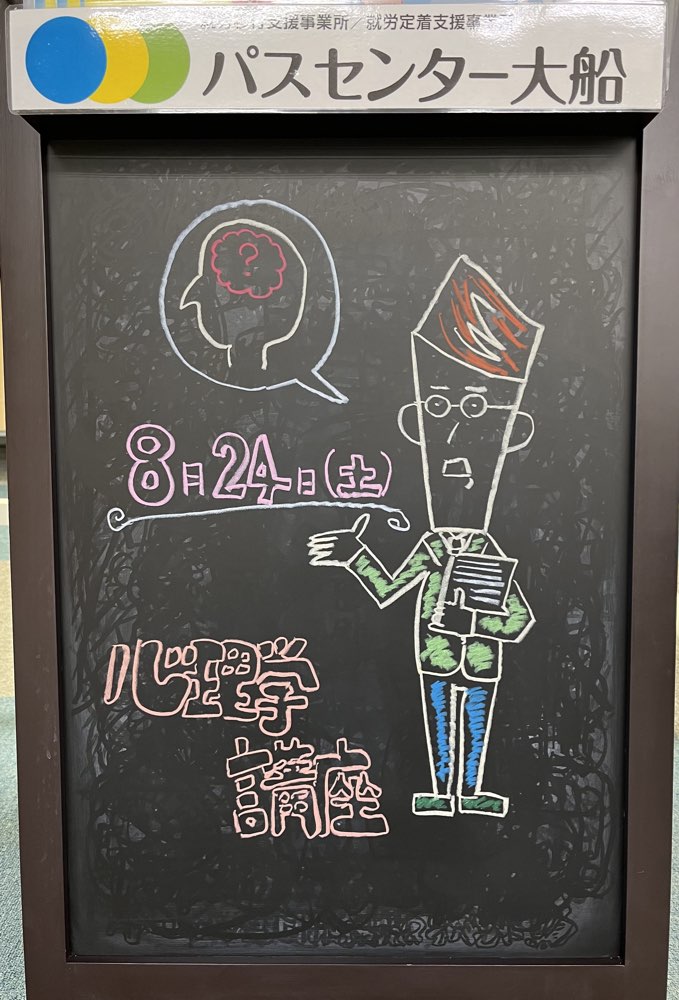 就労移行支援事業所／就労定着支援事業所
パスセンター大船
?
8月24日(土)
心理学
講座